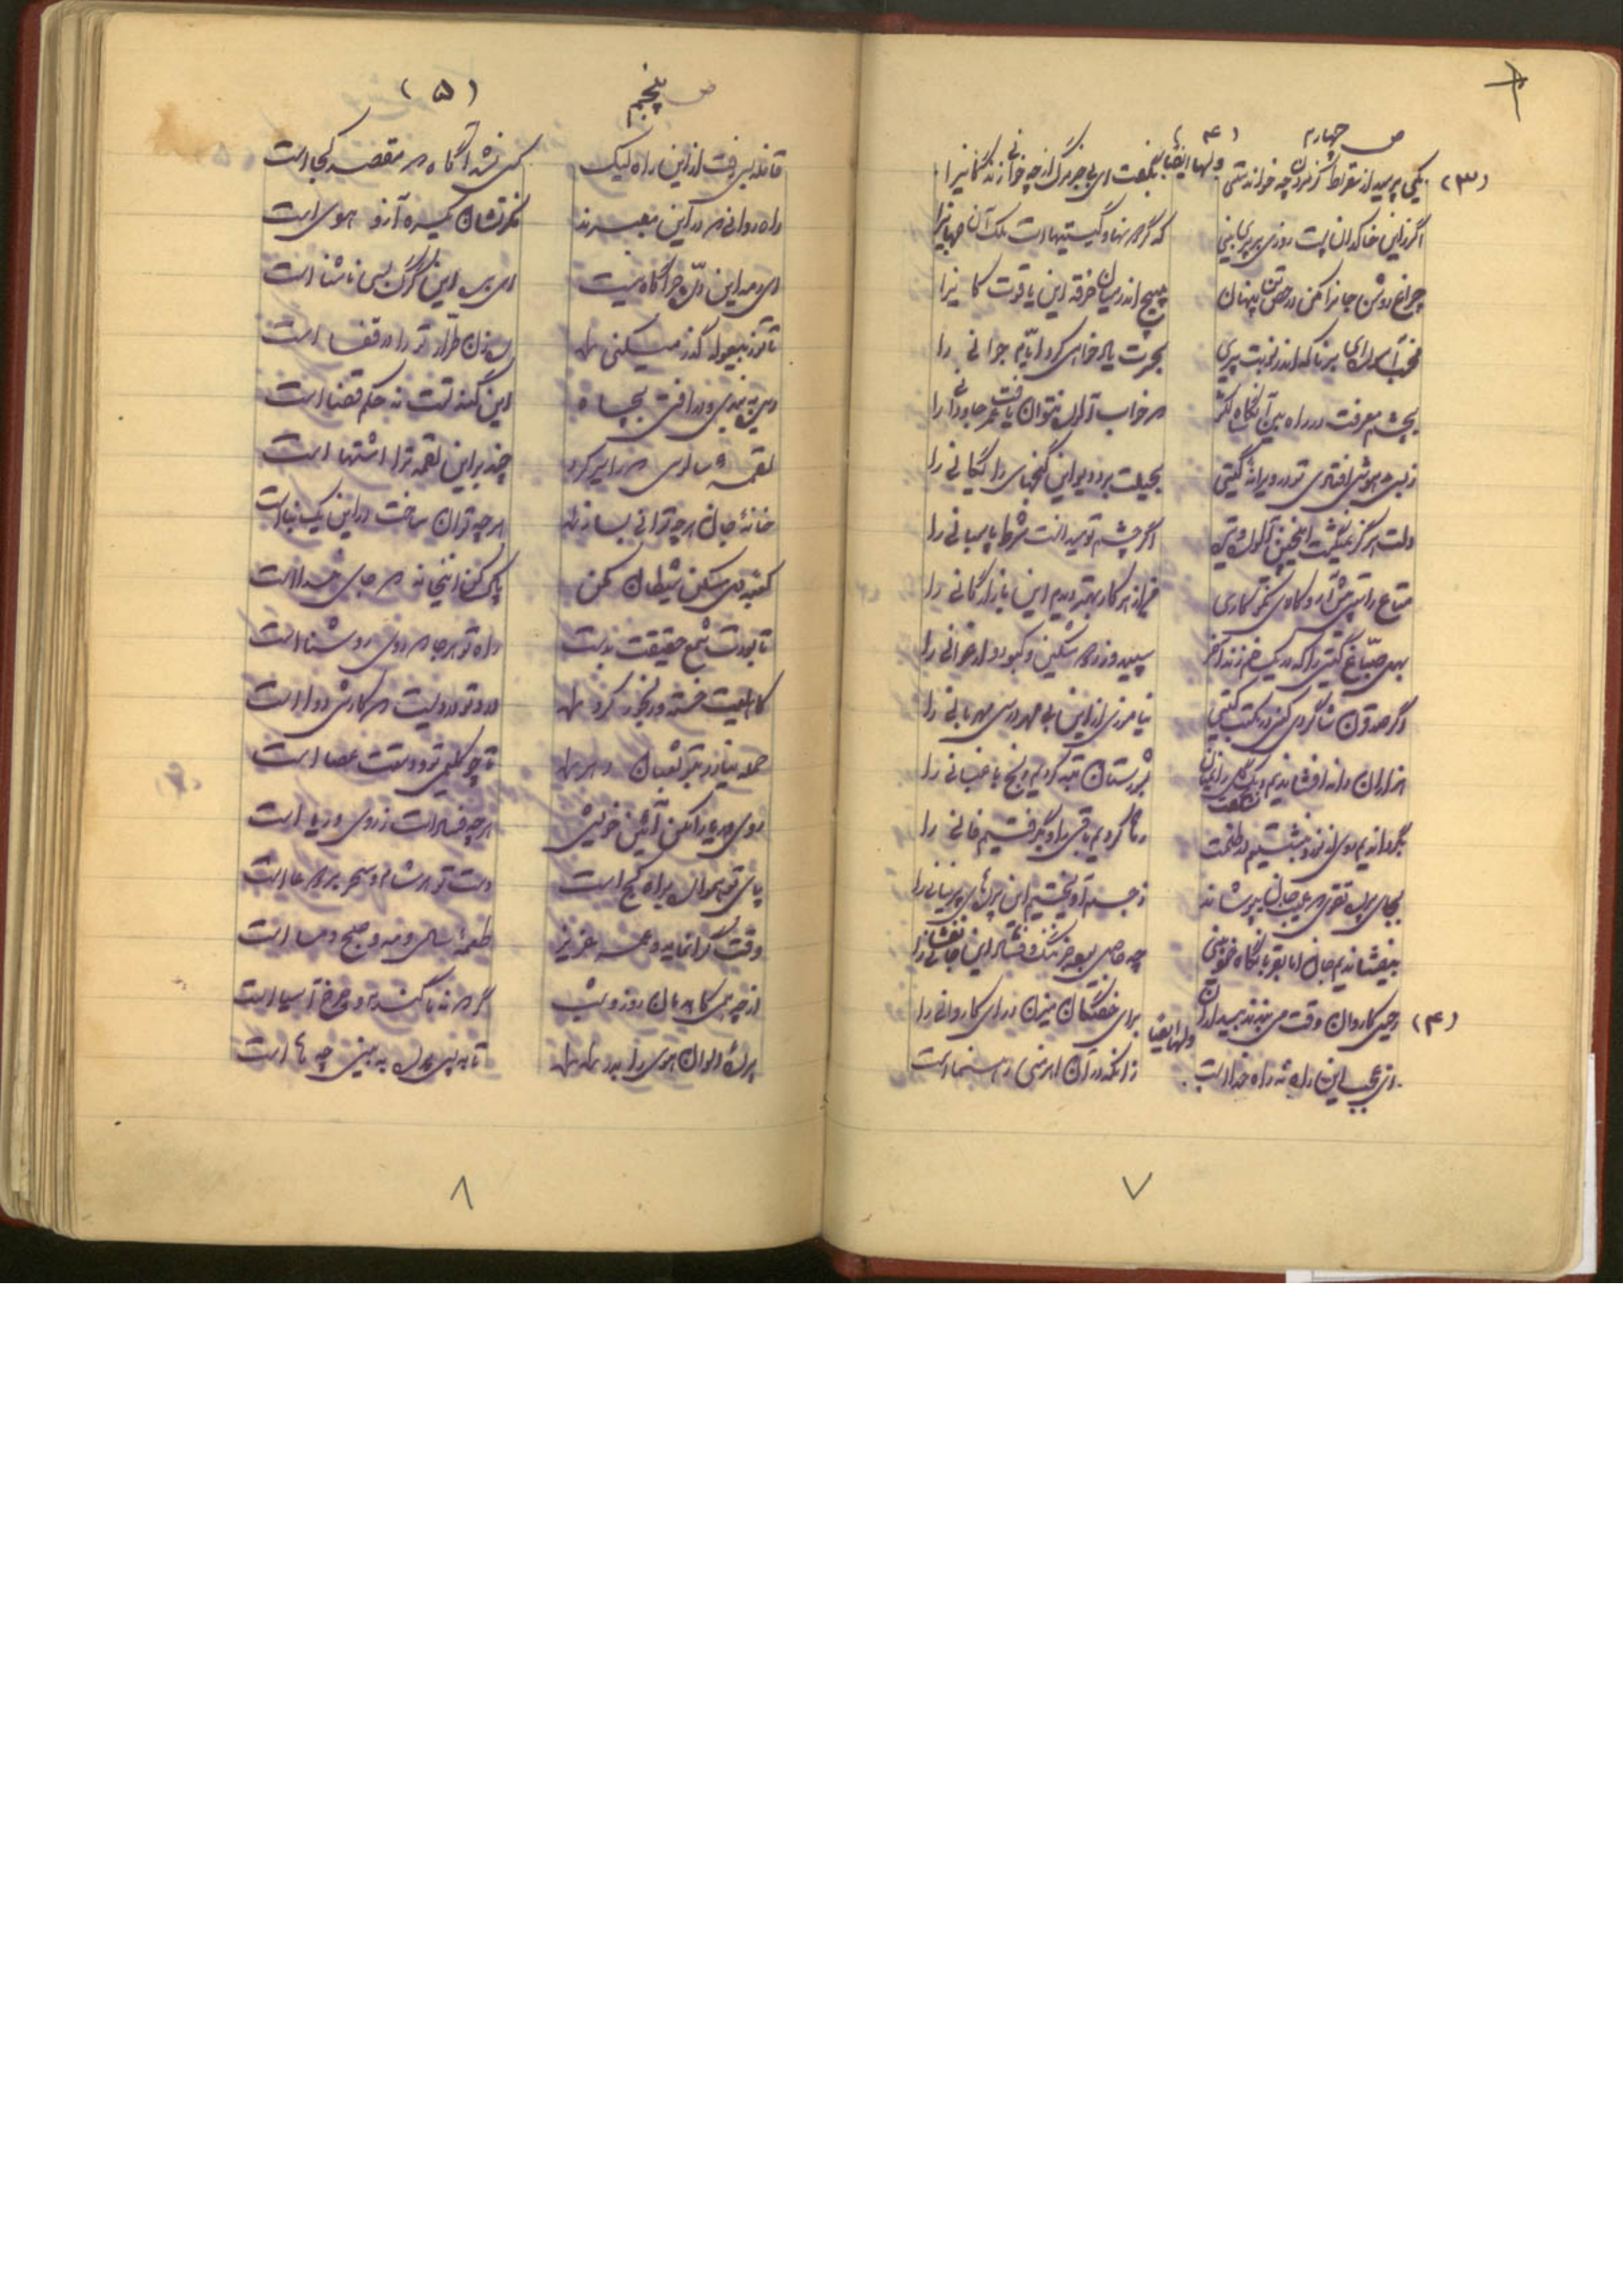 ص چهارم (۴)
(۳) یکی پرسید از سقراط کز مردن چه خواندستی ولها ایضاً بگفت ای بی خبر مرگ از چه خوانی زندگانیرا
اگر زین خاکدان پست روزی بر پری بینی که گردونها و گیتیهاست ملک آن جهانیرا
چراغ روشن جانرا مکن در حصن تن پنهان مپیچ اندر میان خرقه این یاقوت کانیرا
مخسب آسوده ای برنا که اندر نوبت پیری بحسرت یاد خواهی کرد ایام جوانی را
بچشم معرفت در راه بین آنگاه که خواب آلوده نتوان یافت عمر جاودانی را
ز بس مدهوش افتادی تو در ویرانه گیتی بحیلت برد دیو این گنجهای رایگانی را
دلت هرگز نمیگشت اینچنین آلوده و تیره اگر چشم تو میدانست شرط پاسبانی را
متاع راستی پیش آر و کالای نکوکاری من از هر کار بهتر دیدم این بازارگانی را
بهل صبّاغ گیتی را که در یک خم زند آخر سپید و زرد و مشکین و کبود و ارغوانی را
وگر صد قرن شاگردی کنی در مکتب گیتی نیاموزی از این بی مهر درس مهربانی را
هزاران دانه افشاندیم و یک گل زانمیان نشکفت بشورستان تبه کردیم رنج باغبانی را
بگرداندیم روی از نور و بنشستیم در ظلمت رها کردیم باقی را و بگرفتیم فانی را
بجای پرده تقوی که عیب جان بپوشاند ز جسم آویختیم این پرده‌های پرنیانی را
نیفشاندیم جان اما بقربانگاه خودبینی چه حاصل بود جز ننگ و فساد این جانفشانی را
رحیل کاروان وقت می‌بینند بیداران برای خفتگان میزن درای کاروانی را
(۴) ای عجب این راه نه راه خداست ولها ایضا زانکه در آن اهرمنی رهنما است
۷
ص پنجم (۵)
قافله بس رفت از این راه لیک کس نشد آگاه که مقصد کجا است
راه‌روانی که در این معبرند فکرتشان یکسره آز و هوی است
ای رمه این درّه چراگاه نیست ای بره این گرگ بسی ناشتا است
تا تو ز بیغوله گذر میکنی رهزن طرار تو را در قفا است
دیده ببندی و درافتی بچاه این گنه تست نه حکم قضا است
لقمه سالوس که را سیر کرد چند بر این لقمه ترا اشتها است
خانه جان هر چه توانی بساز هر چه توان ساخت در این یک بنا است
کعبه دل مسکن شیطان مکن پاک کن اینخانه که جای خدا است
تا بودت شمع حقیقت بدست راه تو هر جا که روی روشنا است
کاهلیت خسته و رنجور کرد درد تو دردیست که کارش دوا است
حمله نیارد بتو ثعبان دهر تا چو کلیمی تو و دستت عصا است
روی و ریا را مکن آئین خویش هر چه فساد است ز روی و ریا است
پای تو همواره براه کج است دست تو هر شام و سحر بر دعا است
وقت گرانمایه و عمر عزیز طعمه سال و مه و صبح و مسا است
از چه همی کاهدمان روز و شب گر که نه ما گندم و چرخ آسیا است
پرده الوان هوی را بدر تا به پس پرده به بینی چه ها است
۸